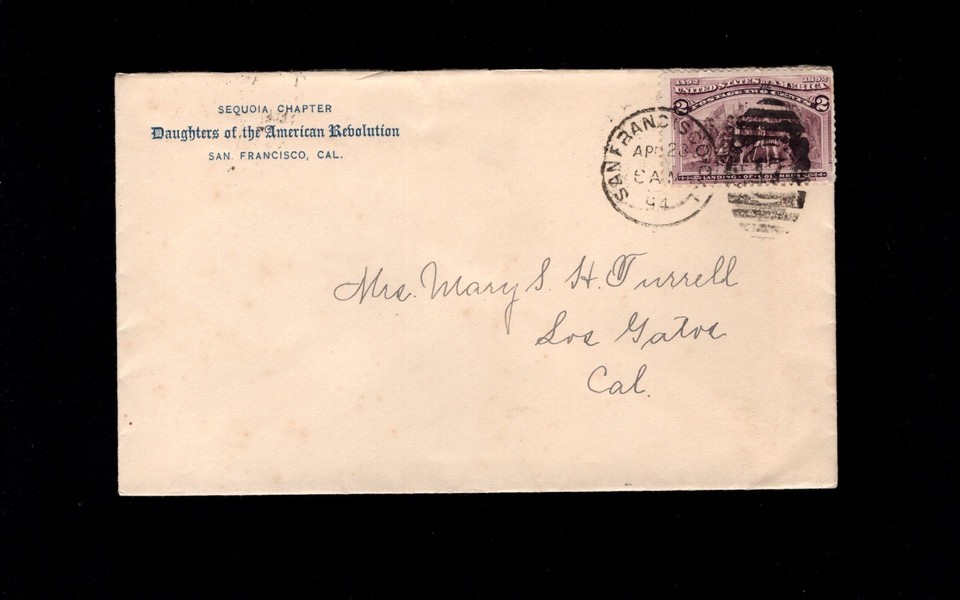 SEQUOIA CHAPTER
Daughters of the American Revolution
SAN FRANCISCO, CAL.
1492 1892
UNITED STATES OF AMERICA
POSTAGE TWO CENTS
2 2
LANDING OF COLUMBUS
SAN FRANCISCO
APR 28
6 AM
94
Mrs. Mary S. H. Turrell
Los Gatos
Cal.